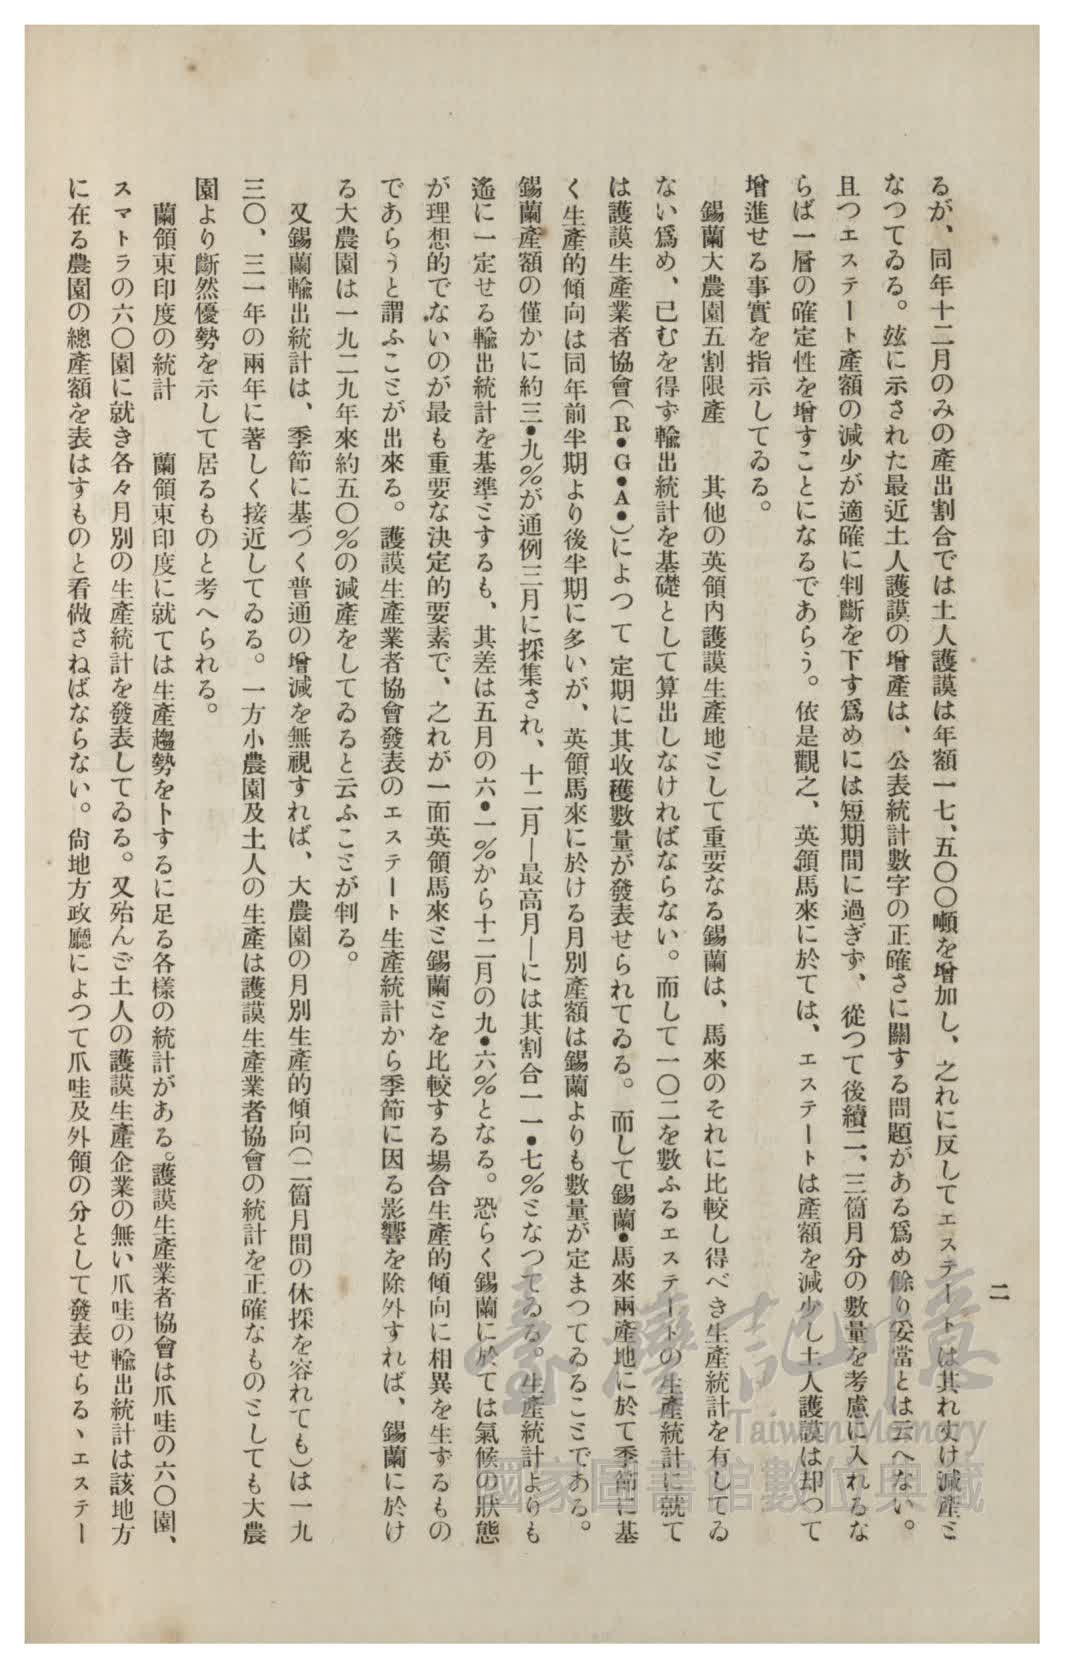 二
るが、同年十二月のみの產出割合では土人護謨は年額一七、五〇〇噸を增加し、之れに反してエステートは其れ丈け減產ミ
なつてゐる。玆に示された最近土人護謨の增產は、公表統計數字の正確さに關する問題がある爲め餘り妥當とは云へない。
且つエステート產額の減少が適確に判斷を下す爲めには短期間に過ぎず、從つて後續二、三箇月分の數量を考慮に入れるな
らば一層の確定性を增すことになるであらう。依是觀之、英領馬來に於ては、エステートは產額を減少し土人護謨は却つて
增進せる事實を指示してゐる。
錫蘭大農園五割限產　其他の英領內護謨生產地ミして重要なる錫蘭は、馬來のそれに比較し得べき生產統計を有してゐ
ない爲め、已むを得ず輸出統計を基礎として算出しなければならない。而して一〇二を數ふるエステートの生產統計に就て
は護謨生產業者協會(R•G•A•)によつて定期に其收穫數量が發表せられてゐる。而して錫蘭•馬來兩產地に於て季節に基
く生產的傾向は同年前半期より後半期に多いが、英領馬來に於ける月別產額は錫蘭よりも數量が定まつてゐるこミである。
錫蘭產額の僅かに約三•九%が通例三月に採集され、十二月—最高月—には其割合一一•七%ミなつてゐる。生產統計よりも
遙に一定せる輸出統計を基準ミするも、其差は五月の六•一%から十二月の九•六%となる。恐らく錫蘭に於ては氣候の狀態
が理想的でないのが最も重要な決定的要素で、之れが一面英領馬來ミ錫蘭ミを比較する場合生產的傾向に相異を生ずるもの
であらうと謂ふこミが出來る。護謨生產業者協會發表のエステート生產統計から季節に因る影響を除外すれば、錫蘭に於け
る大農園は一九二九年來約五〇%の減產をしてゐると云ふこミが判る。
又錫蘭輸出統計は、季節に基づく普通の增減を無視すれば、大農園の月別生產的傾向(二箇月間の休採を容れても)は一九
三〇、三一年の兩年に著しく接近してゐる。一方小農園及土人の生產は護謨生產業者協會の統計を正確なものミしても大農
園より斷然優勢を示して居るものと考へられる。
蘭領東印度の統計　蘭領東印度に就ては生產趨勢をトするに足る各樣の統計がある。護謨生產業者協會は爪哇の六〇園、
スマトラの六〇園に就き各々月別の生產統計を發表してゐる。又殆んご土人の護謨生產企業の無い爪哇の輸出統計は該地方
に在る農園の總產額を表はすものと看做さねばならない。尙地方政廳によつて爪哇及外領の分として發表せらるヽエステー
臺灣記憶
Taiwan Memory
國家圖書館數位典藏